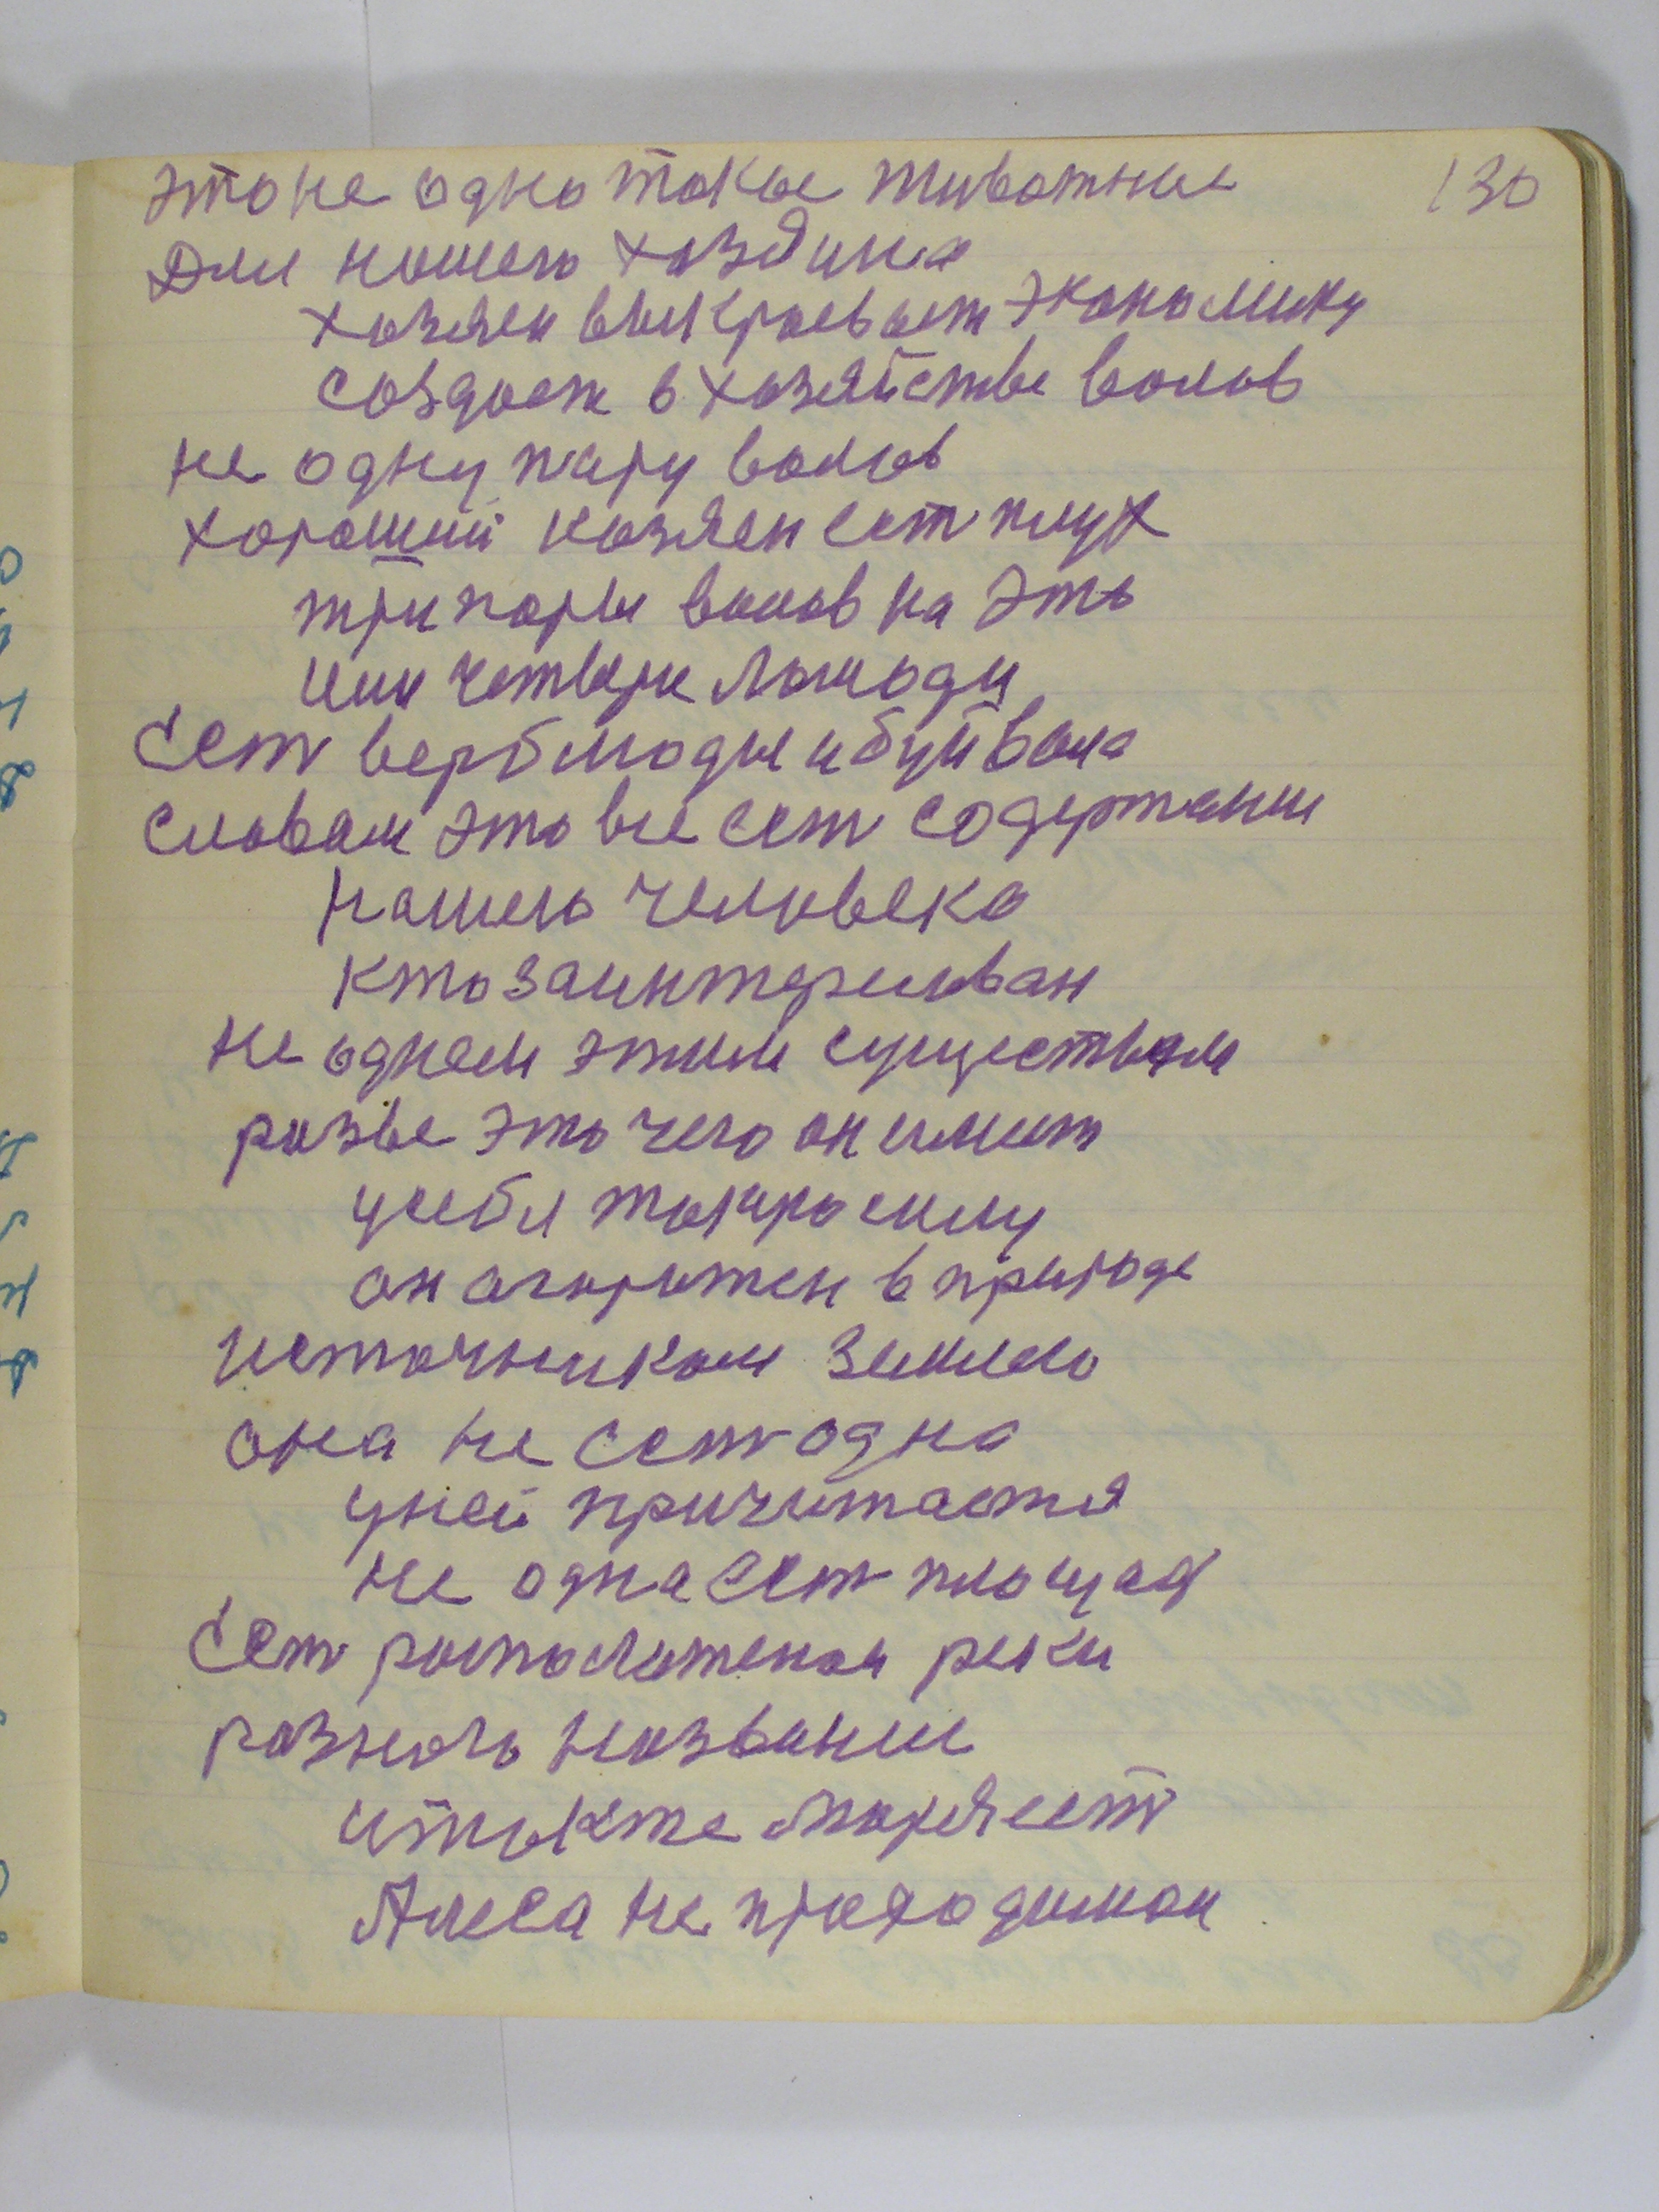 это не одно такое животние 130
Для нашего хозяина
хозяен выкраевает экономику
создает в хозяйстве волов
не одну пару волов
хороший хозяен ест плух
три пары волов на это
или четвери лошади
Ест верблюды и буйвола
словам это все ест содержание
нашего человека
кто заинтересован
не однем этим существам
разве это чего он имеет
у себя такую силу
он огорожен в природе
источником землею
она не ест одна
у ней причитается
не одна ест площад
Ест расположеная реки
разного название
и также моря ест
Алеса не проходимаи